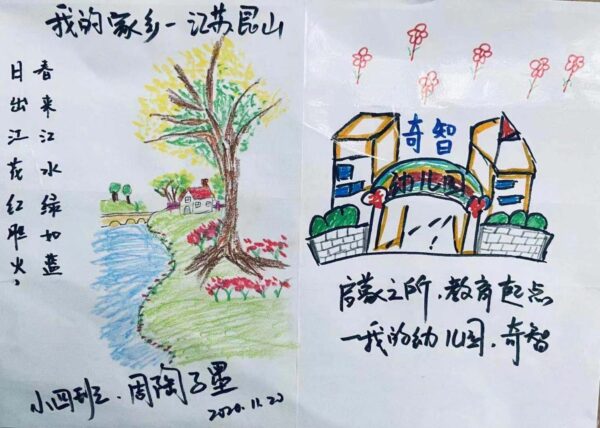 我的家乡—江苏昆山
日出江花红胜火，
春来江水绿如蓝
小四班、周陶子墨
2020.11.20
奇智
幼儿园
启蒙之所、教育起点
—我的幼儿园、奇智